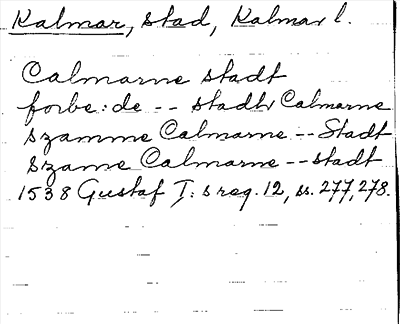 Kalmar, stad, Kalmar l.
Calmarne stadt
forbe: de -- stadtz Calmarne
szamme Calmarne -- Stadt
szame Calmarne -- stadt
1538 Gustaf I: s reg. 12, ss. 277, 278.